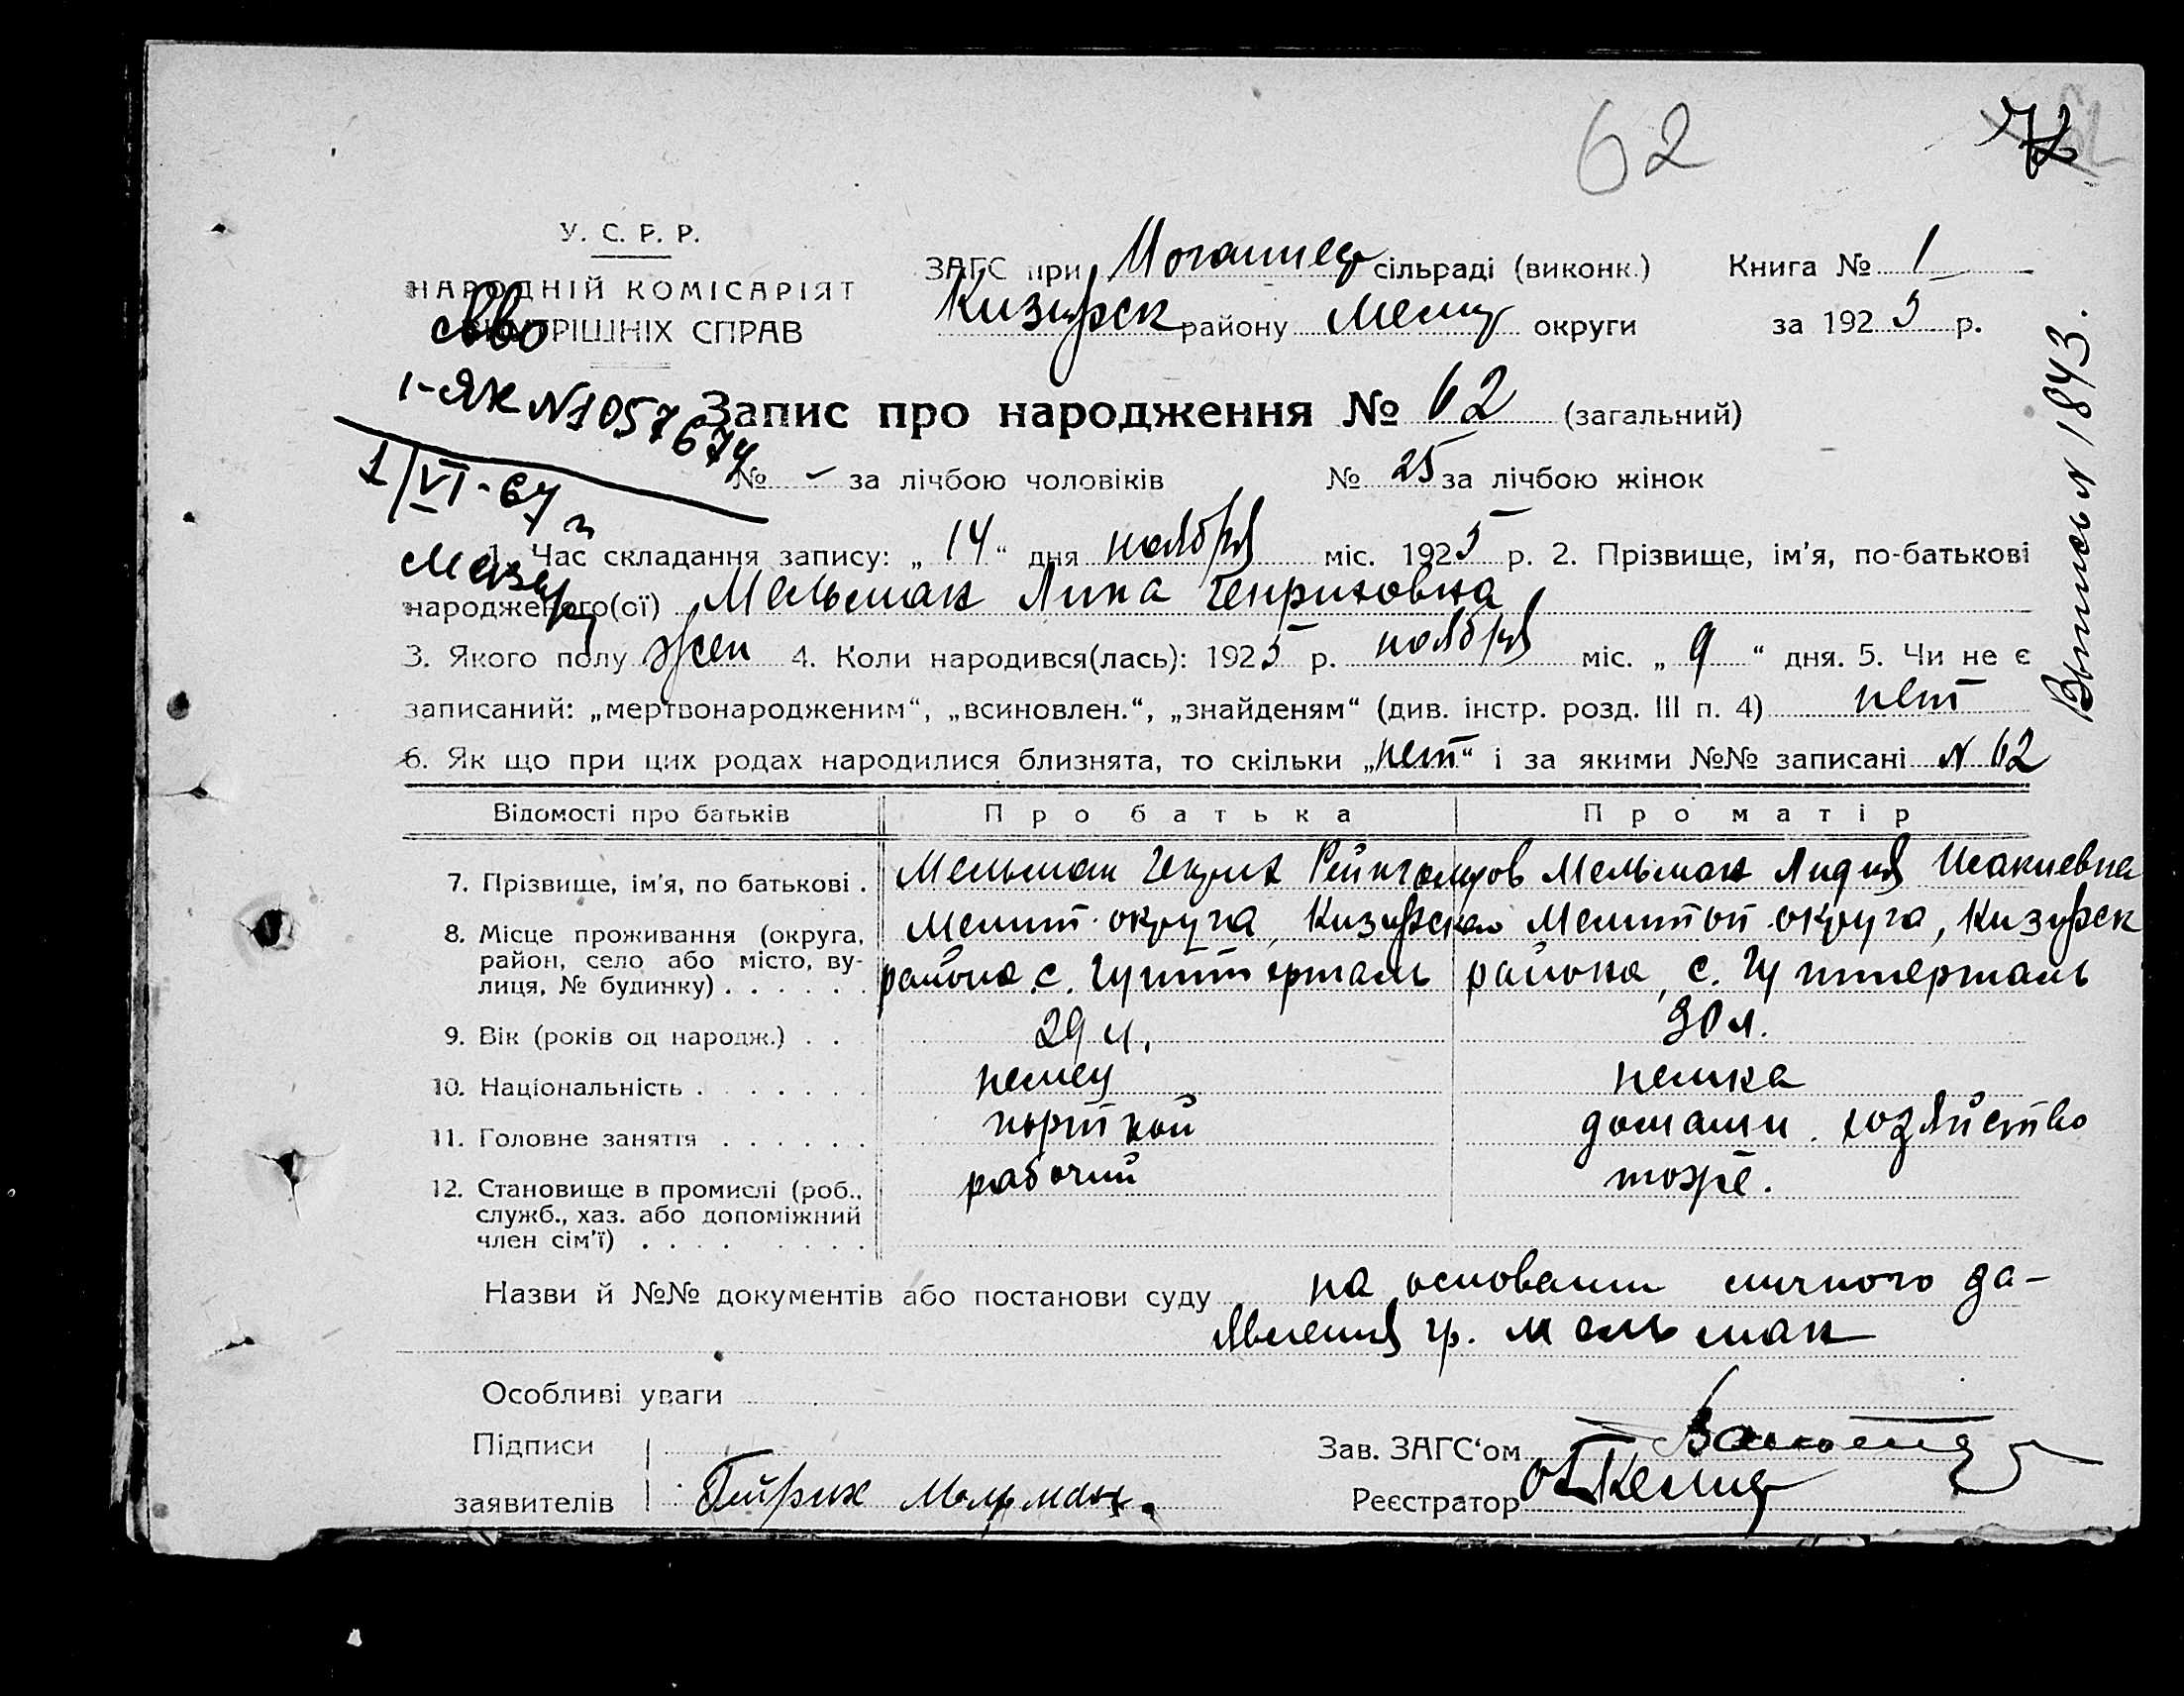 62
72
У. С. Р. Р.
НАРОДНІЙ КОМІСАРІЯТ
ВНУТРІШНІХ СПРАВ
ЗАГС при сільраді (виконк.) Книга № 1
району округи за 1925 р.
Выпись N 1843.
Запис про народження № 62 (загальний)
I-ЯК N 1057674
1/VI-67 г
№ - за лічбою чоловіків № 25 за лічбою жінок
1. Час складання запису: „14“ дня ноября міс. 1925 р. 2. Прізвище, ім'я, по-батькові
народженого(ої) Мельман Лина Генриховна
3. Якого полу жен 4. Коли народився(лась): 1925 р. ноября міс. „9“ дня. 5. Чи не є
записаний: „мертвонародженим“, „всиновлен.“, „знайденям“ (див. інстр. розд. III п. 4) нет
6. Як що при цих родах народилися близнята, то скільки „нет“ і за якими №№ записані N 62
Відомості про батьків Про батька Про матір
7. Прізвище, ім'я, по батькові . Мельман Генрих Мельман Лидия Исакиевна
8. Місце проживання (округа, Мелит. округа, Мелитоп. округа,
район, село або місто, ву- района с. Гуттерталь района, с. Гуттерталь
лиця, № будинку) . . . . . .
9. Вік (років од народж.) . . 29 л. 30 л.
10. Національність . . . . . . . немец немка
11. Головне заняття . . . . . . портной домашн. хозяйство
12. Становище в промислі (роб., рабочий тоже.
служб., хаз. або допоміжний
член сім'ї) . . . . . . . .
Назви й №№ документів або постанови суду на основании личного за-
явления гр. Мельман
Особливі уваги
Підписи Зав. ЗАГС'ом
заявителів Реєстратор